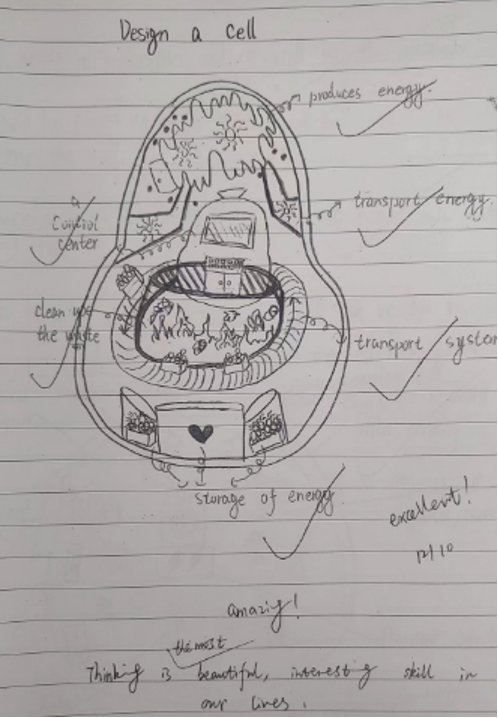 Design a cell
produces energy.
transport energy.
a
Control
center
clean up
the waste
transport system
storage of energy.
excellent!
12/10
amazing!
the most
Thinking is beautiful, interesting skill in
our lives.